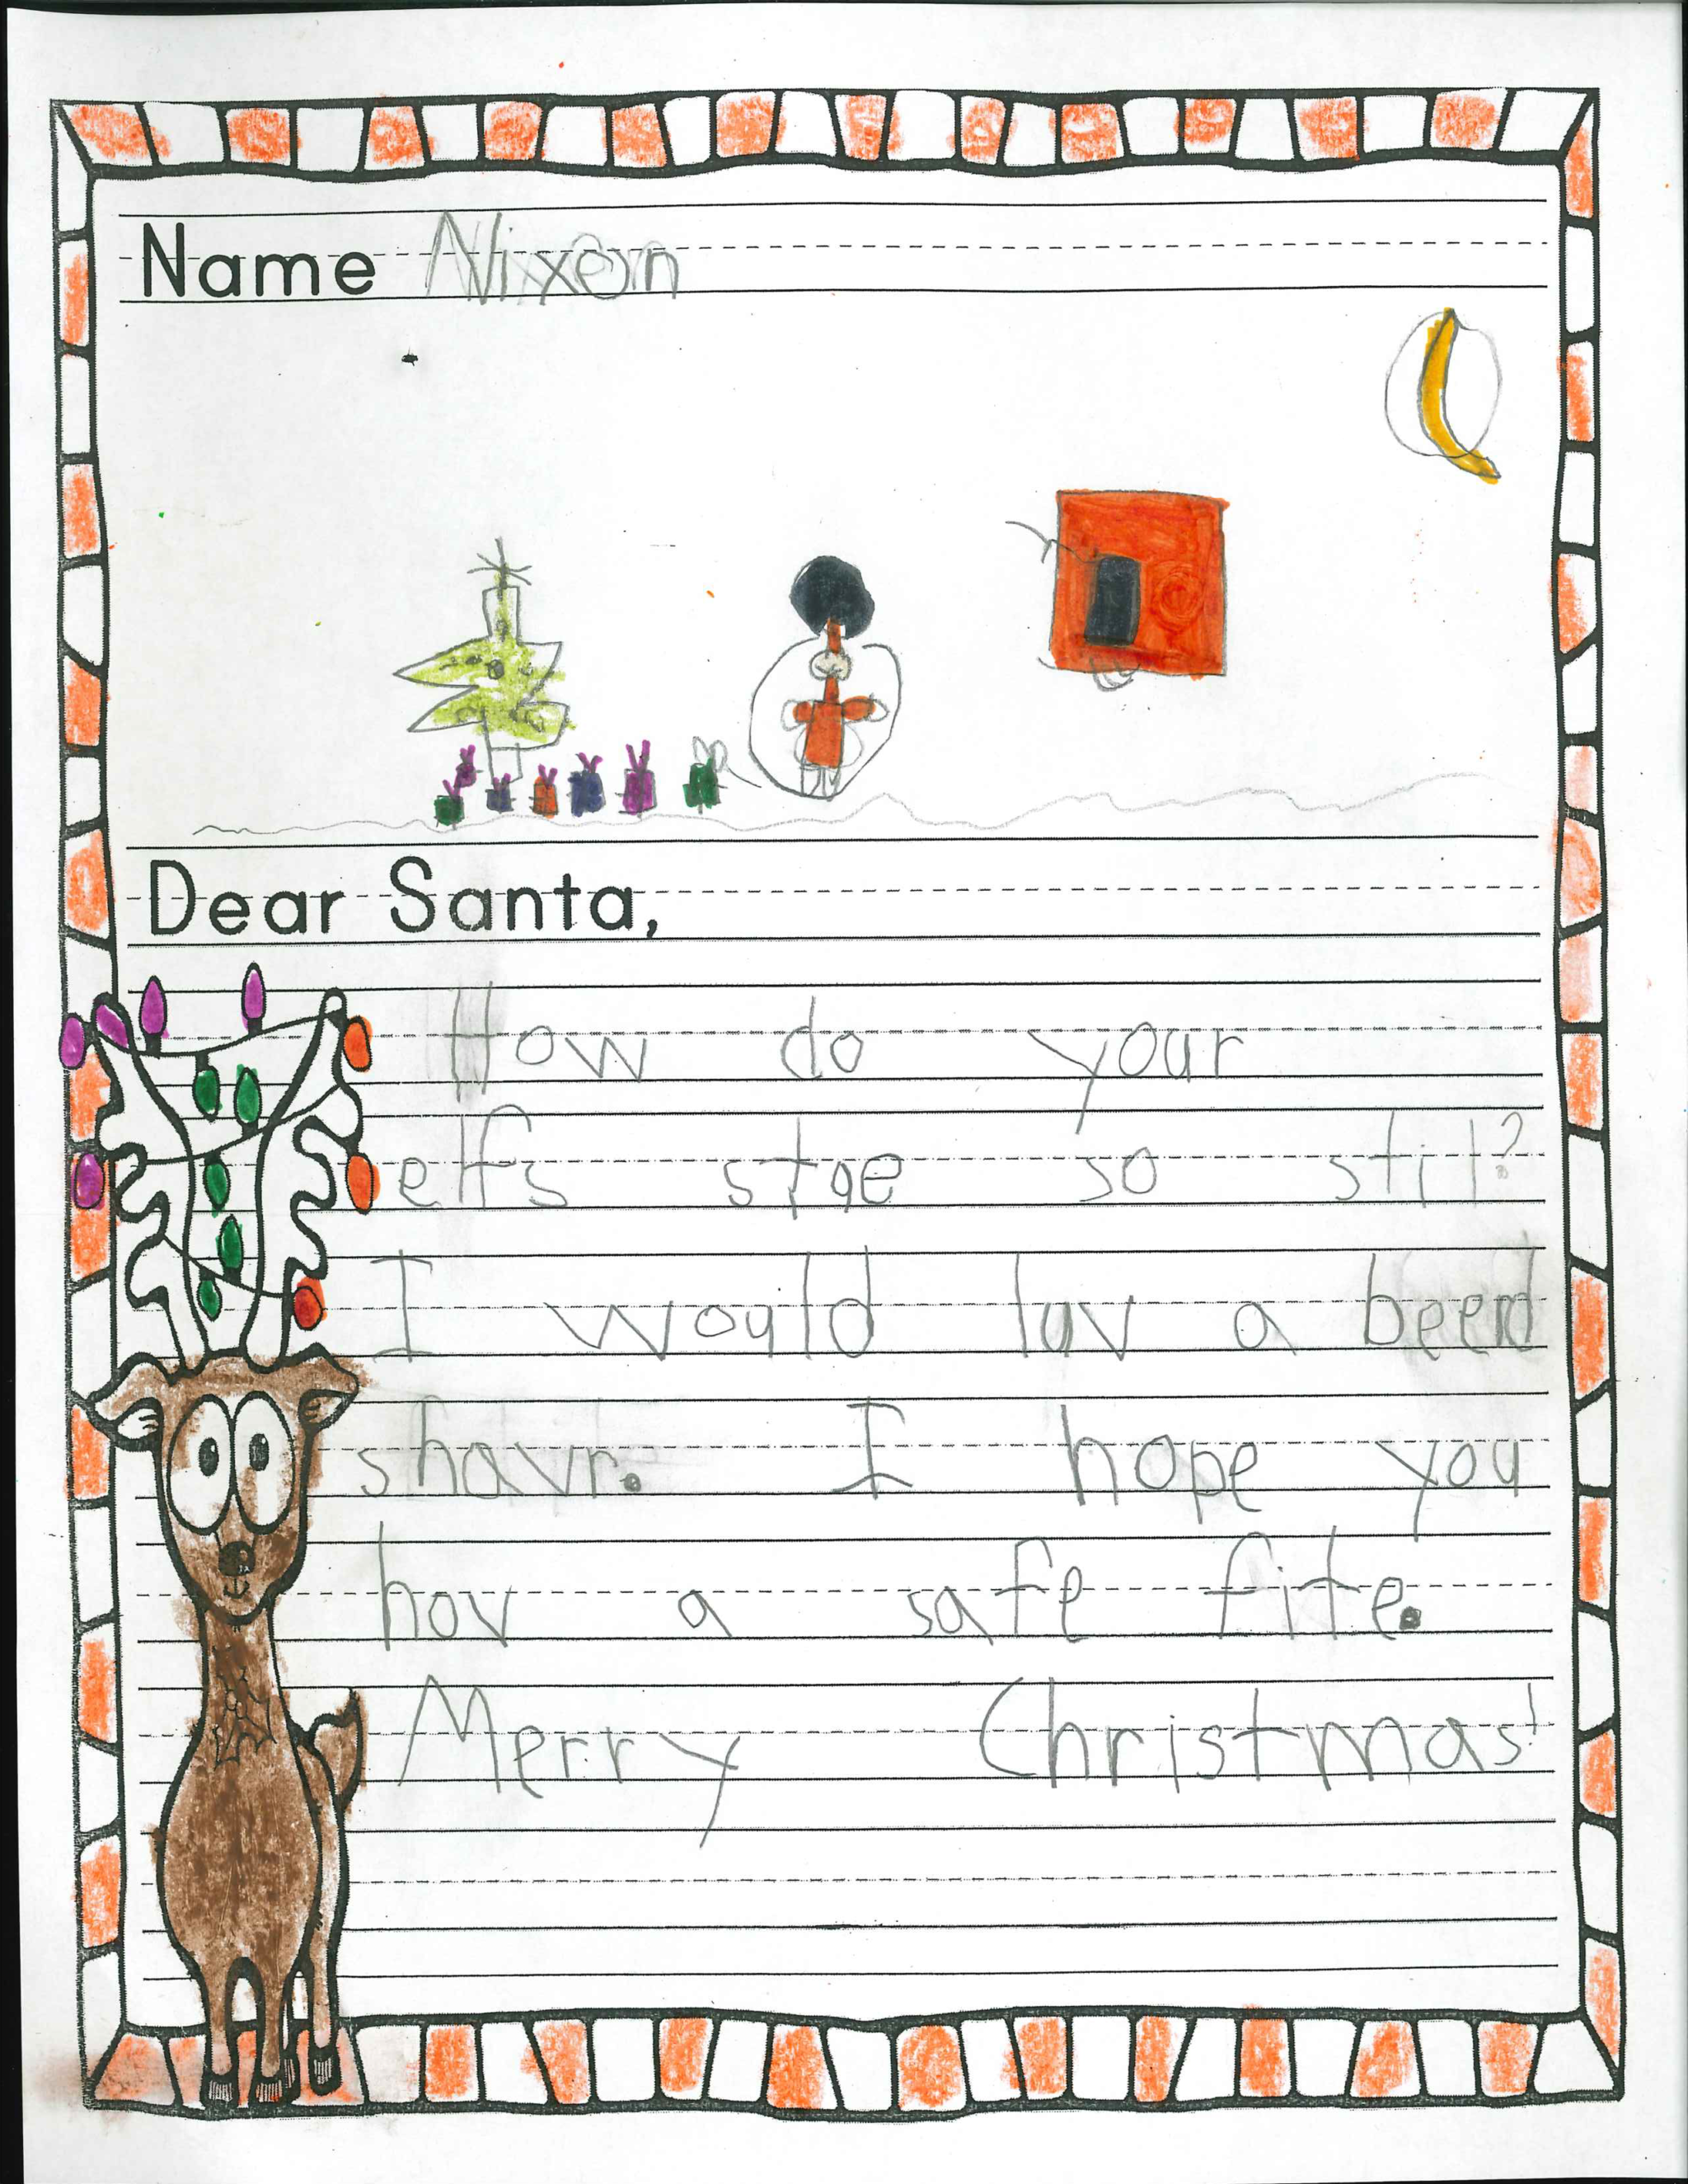 Name Nixon
Dear Santa,
How do your
elfs stae so stil?
I would luv a beerd
shavr. I hope you
hov a safe fite.
Merry Christmas!